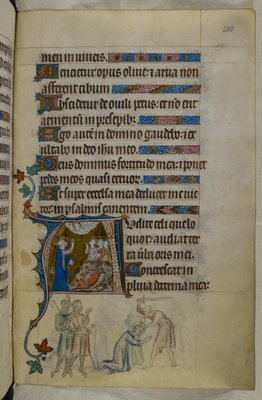 men in vineis.
Menciet opus oliue: & arua non
afferent cibum
Abscidet de ouili pecus: et no erit
armentū in presepib;
Ego autē in domino gaudebo: et
exultabo in deo ihū meo.
Deus dominus fortitudo mea: et ponet
pedes meos quasi ceruor.
Et super excelsa mea deducet me uic
tor: in psalmis canentem.
Audite celi que lo
quor: audiat ter
ra uba oris mei
Concrescat in
pluuia doctrina mea: